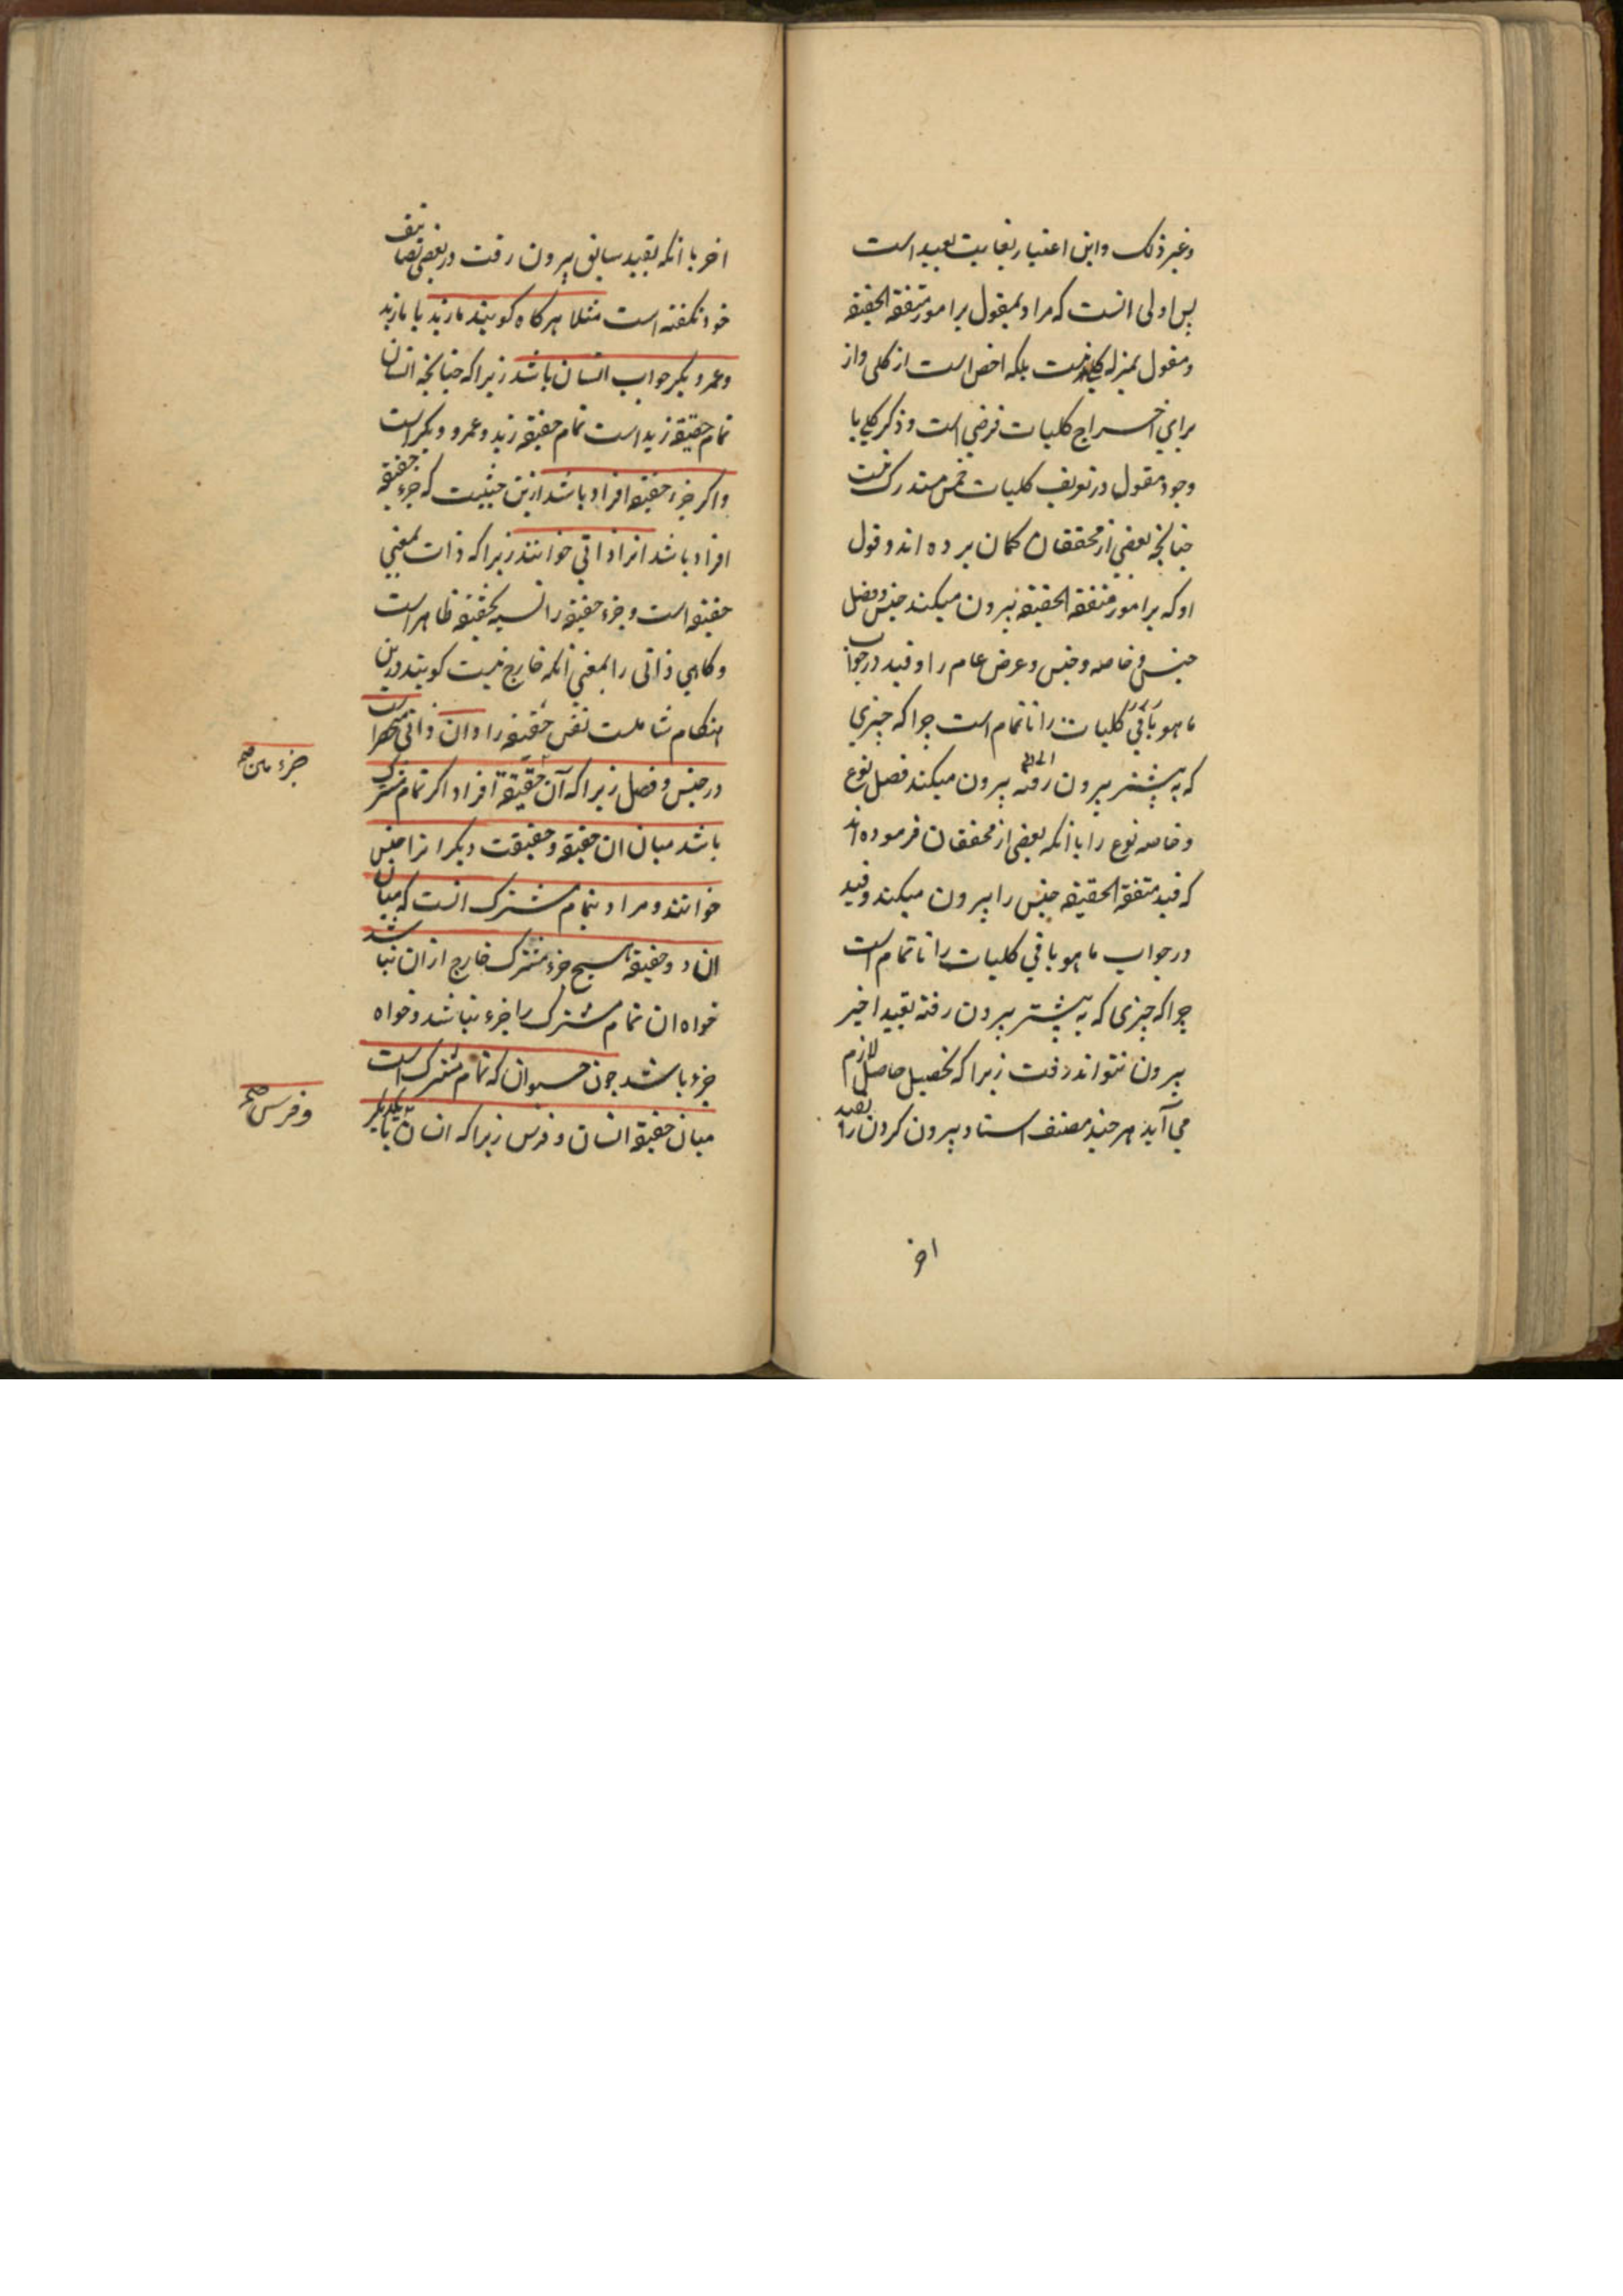 وغیر ذلک واین اعتبار بغایت بعید است
پس اولی انست که مراد بمقول بر امور متفقة الحقیقه
ومقول بمنزله کلی نیست بلکه اخص است از کلی واز
برای اخراج کلیات فرضی است وذکر کلی با
وجود مقول در تعریف کلیات خمس مستدرک نیست
چنانچه بعضی از محققان کمان برده اند وقول
او که بر امور متفقة الحقیقه بیرون میکند جنس وفصل
جنس وخاصه وجنس وعرض عام را وقید در جواب
ما هو باقی کلیات را ناتمام است چرا که چیزی
که پیشتر بیرون رفته بیرون میکند فصل نوع
وخاصه نوع را با آنکه بعضی از محققان فرموده اند
که قید متفقة الحقیقه جنس را بیرون میکند وقید
در جواب ما هو باقی کلیات را ناتمام است
چرا که چیزی که پیشتر بیرون رفته بقید اخیر
بیرون نتواند رفت زیرا که تحصیل حاصل لازم
می آید هر چند مصنف اسناد بیرون کردن را بقید
اخر
اخر با انکه بقید سابق بیرون رفت در بعضی تصانیف
خود نکفته است مثلا هرکاه کویند ما زید یا ما زید
وعمرو وبکر جواب انسان باشد زیرا که چنانچه انسان
تمام حقیقة زید است تمام حقیقة زید وعمرو وبکر است
واکر جزء حقیقة افراد باشد ازین حیثیت که جزء حقیقة
افراد باشد انرا ذاتی خوانند زیرا که ذات بمعنی
حقیقة است وجزء حقیقة را نسبه بحقیقة ظاهر است
وکاهی ذاتی را بمعنی آنکه خارج نیست کویند درین
هنکام شاملست نفس حقیقة را وان ذاتی منحصر است
در جنس وفصل زیرا که آن حقیقة افراد اکر تمام مشترک
جزء ما بین صح
باشد میان ان حقیقة وحقیقت دیکر انرا جنس
خوانند ومراد بتمام مشترک انست که میان
ان دو حقیقة هیچ جزء مشترک خارج از ان نباشد
خواه ان تمام مشترک را جزء نباشد وخواه
جزء باشد چون حیوان که تمام مشترک است
میان حقیقة انسان وفرس زیرا که انسان با یکدیکر
وفرس صح